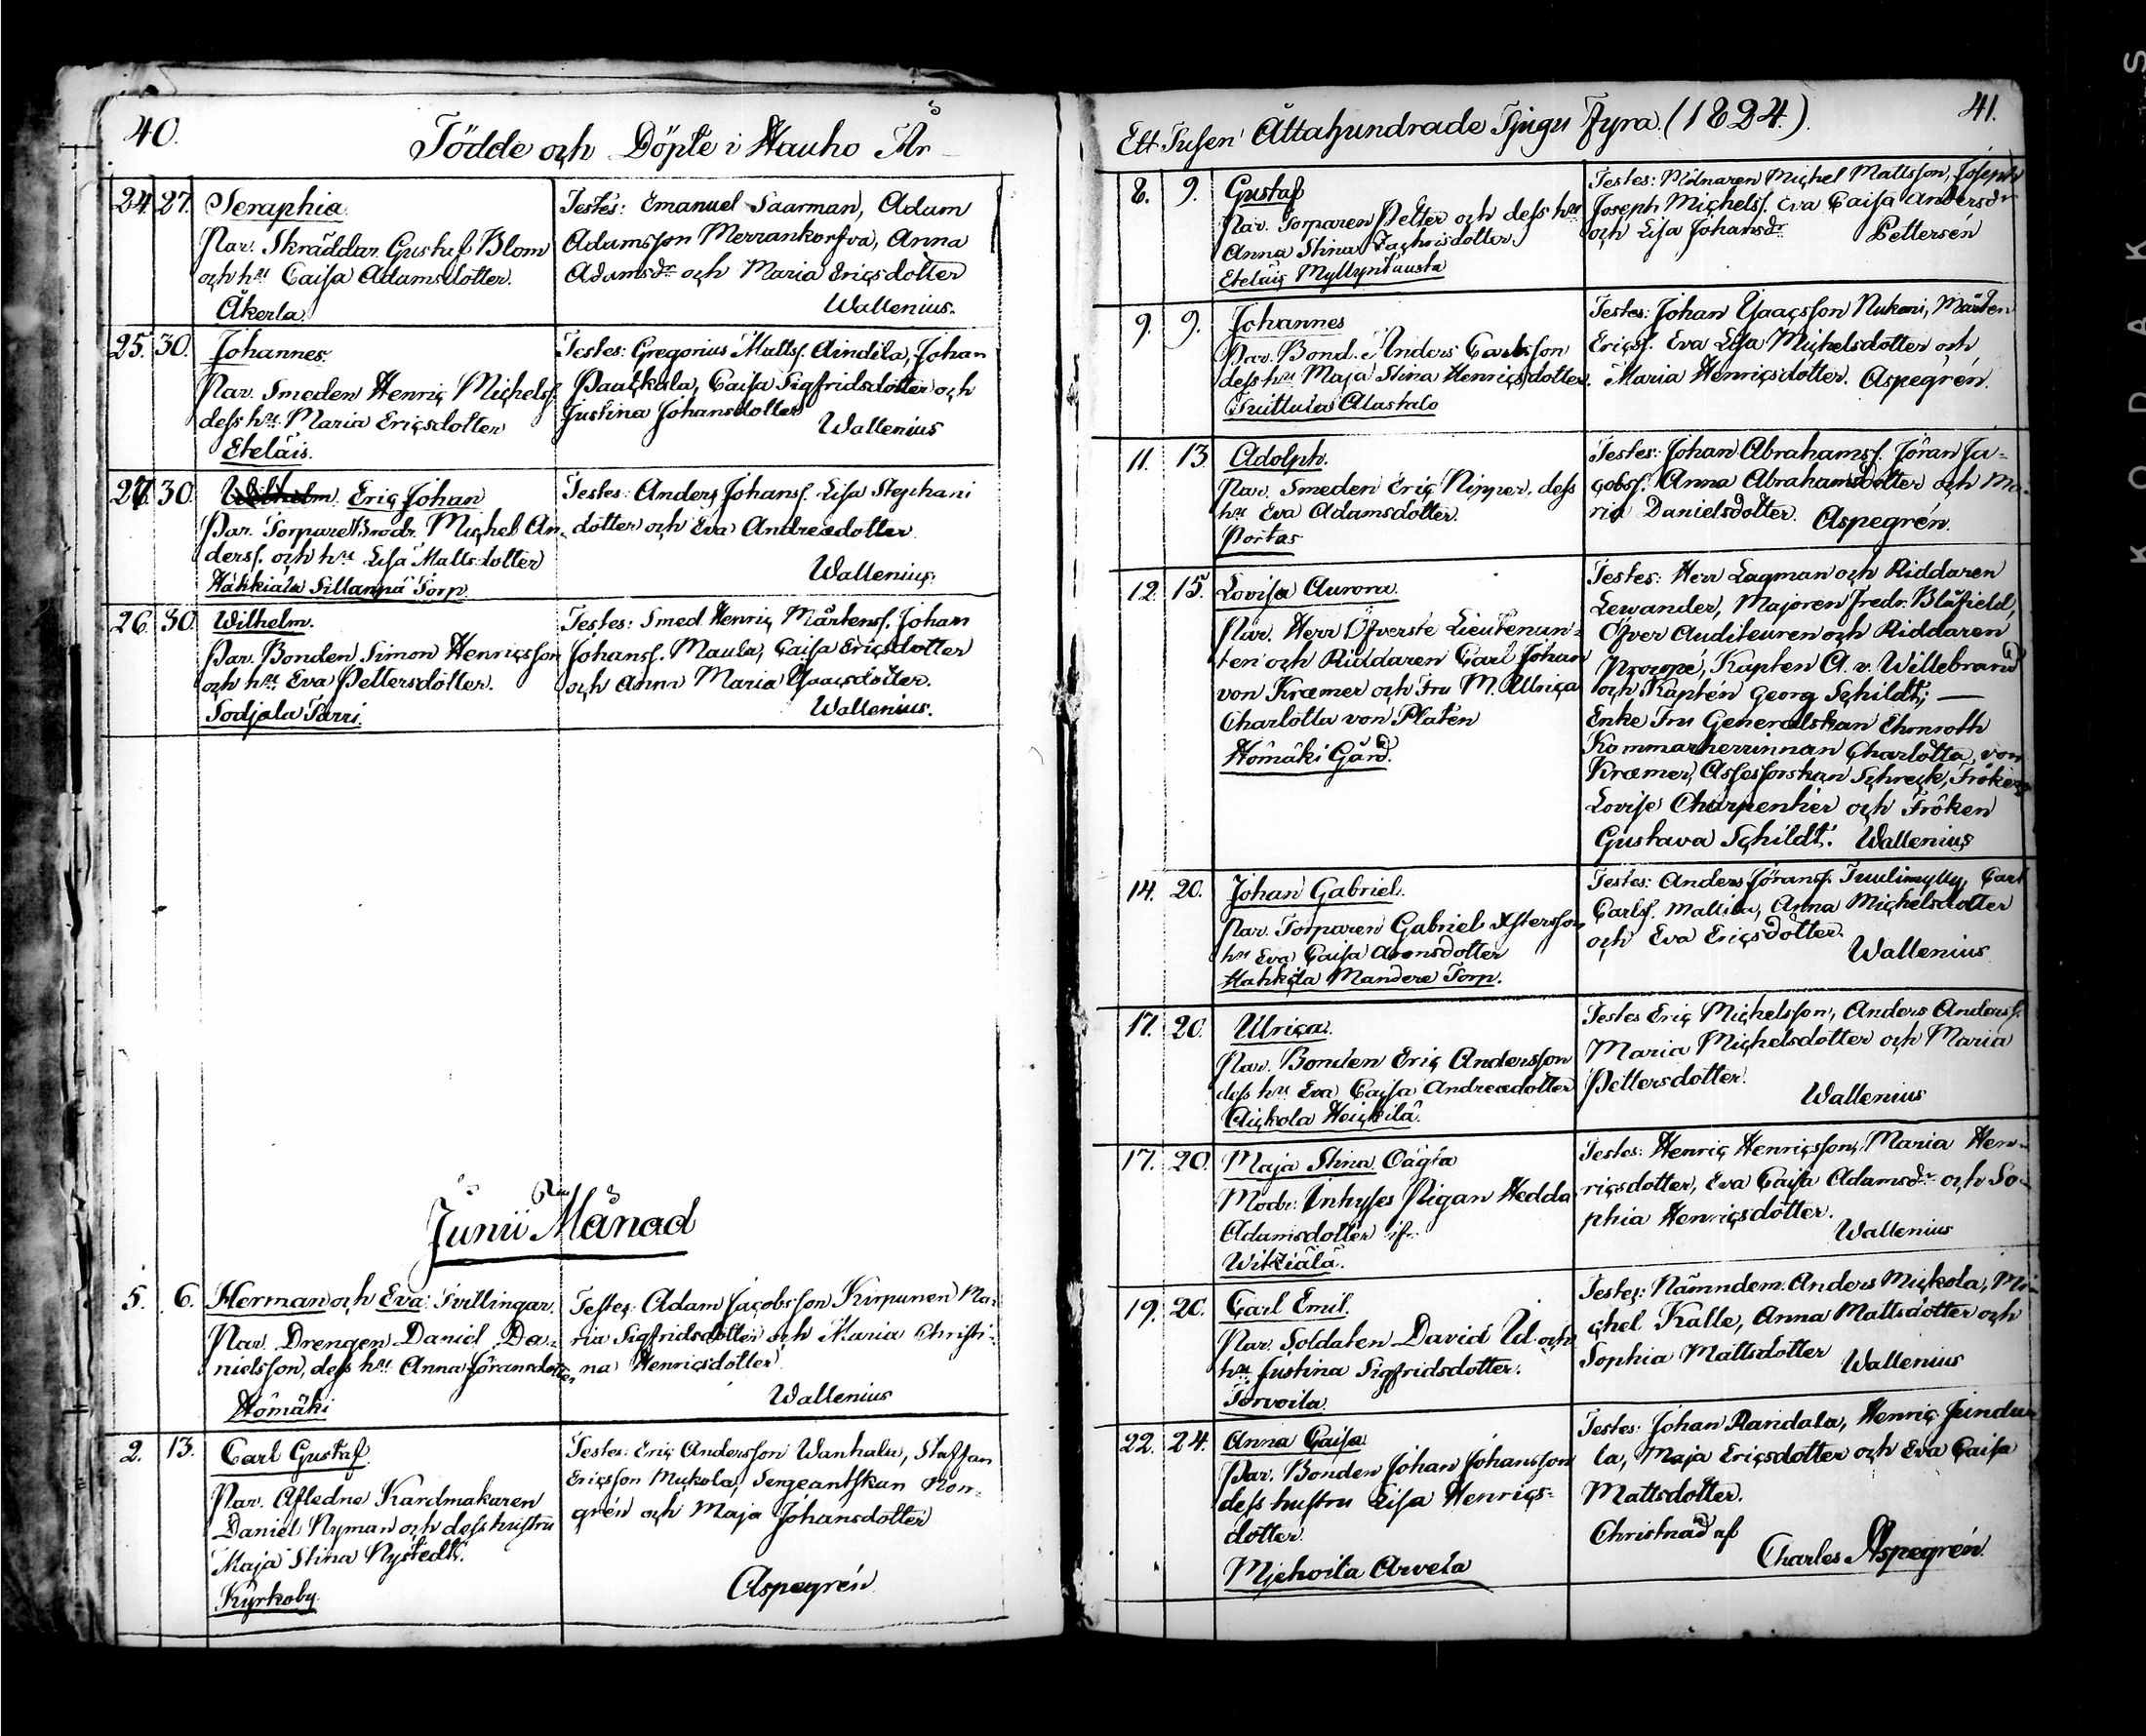 40.
Födde och Döpte i Hauho År
24. 27. Seraphia.
Par. Skräddar. Gustaf Blom
och hu Caisa Adamsdotter.
Åkerla.
Testes: Emanuel Saarman, Adam
Adamsson Merrankorfva, Anna
Adamsdr och Maria Ericsdotter
Wallenius.
25. 30. Johannes.
Par. Smeden Henric Michelss.
dess hu. Maria Ericsdotter
Eteläis.
Testes: Gregorius Matts. Aindila, Johan
Paackala, Caisa Sigfridsdotter och
Justina Johansdotter
Wallenius
30. Eric Johan
Par. Torpare Brodr. Michel An-
derss. och hu. Lisa Mattsdotter
Hahkiala Sillanpä Torp.
Testes: Anders Johanss. Lisa Stephani
dotter och Eva Andreædotter
Wallenius.
26. 30. Wilhelm.
Par. Bonden Simon Henricsson
och hu. Eva Pettersdotter.
Sodjala Parri.
Testes: Smed. Henric Mårtenss. Johan
Johanss. Maula, Caisa Ericsdotter
och Anna Maria Isaacsdotter.
Wallenius.
Junii Månad
5. 6. Herman och Eva Tvillingar.
Par. Drengen Daniel Da-
nielsson, dess hu. Anna Göransdotter
Hömäki
Testes: Adam Jacobsson Kirpunen Ma-
ria Sigfridsdotter och Maria Christi-
na Henricsdotter
Wallenius
2. 13. Carl Gustaf.
Par. Afledne Kardmakaren
Daniel Nyman och dess hustru
Maja Stina Nystedt.
Kyrkoby.
Testes: Eric Andersson Wanhala, Staffan
Ericsson Mukola, Sergeantskan Non-
grén och Maja Johansdotter
Aspegrén
Ett Tusen Åttahundrade Tjugu Fyra. (1824.).
41.
8. 9. Gustaf
Par. Torparen Petter och dess hu
Anna Stina Zachrisdotter.
Eteläis Myllyntausta
Testes: Mölnaren Michel Mattsson, Joseph
Joseph Michelss. Eva Caisa Andersdr
och Lisa Johansdr. Pettersén
9. 9. Johannes
Par. Bond. Anders Carlsson
dess hu. Maja Stina Henricsdotter.
Tuittula Alastalo
Testes: Johan Isaacsson Nukari, Mårten
Ericss. Eva Lisa Michelsdotter och
Maria Henricsdotter. Aspegrén.
11. 13. Adolph.
Par. Smeden Eric Nipper. dess
hu Eva Adamsdotter.
Portas
Testes: Johan Abrahamss. Jöran Ja-
cobss. Anna Abrahamsdotter och Ma-
ria Danielsdotter. Aspegrén.
12. 15. Lovisa Aurora.
Par. Herr Öfverste Lieutenan-
ten och Riddaren Carl Johan
von Kræmer och Fru M. Ulrica
Charlotta von Platen
Hömäki Gård.
Testes: Herr Lagman och Riddaren
Lewander, Majoren Fredr. Blåfield,
Öfver Auditeuren och Riddaren
Procopé, Kapten A. v. Willebrand
och Kapten Georg Schildt; —
Enke Fru Generalskan Ehrnroth
Kammarherrinnan Charlotta von
Kræmer, Assessorskan Schreck, Fröken
Lovisa Charpentier och Fröken
Gustava Schildt. Wallenius
14. 20. Johan Gabriel.
Par. Torparen Gabriel
hu Eva Caisa Aronsdotter
Mandere Torp.
Testes: Anders Göranss. Tuulimylly, Carl
Carlss. Mattila, Anna Michelsdotter
och Eva Ericsdotter.
Wallenius
17. 20. Ulrica.
Par. Bonden Eric Andersson
dess hu Eva Caisa Andreædotter
Heickilä.
Testes Eric Michelsson, Anders Anderss.
Maria Michelsdotter och Maria
Pettersdotter.
Wallenius
17. 20. Maja Stina Oägta
Modr: Inhyses Pigan Hedda
Adamsdotter
Witziälä.
Testes: Henric Henricsson, Maria Hen-
ricsdotter, Eva Caisa Adamsdr och So-
phia Henricsdotter.
Wallenius
19. 20. Carl Emil.
Par. Soldaten David Ud och
hu. Justina Sigfridsdotter.
Torvoila.
Testes: Nämndem. Anders Mickola, Mi-
chel Kalle, Anna Mattsdotter och
Sophia Mattsdotter Wallenius
22. 24. Anna Caisa
Par. Bonden Johan Johansson
dess hustru Lisa Henrics-
dotter.
Mjehoila Arvela
Testes: Johan Randala, Henric Jeindu-
la, Maja Ericsdotter och Eva Caisa
Mattsdotter.
Christnad af
Charles Aspegrén.
KODAK S